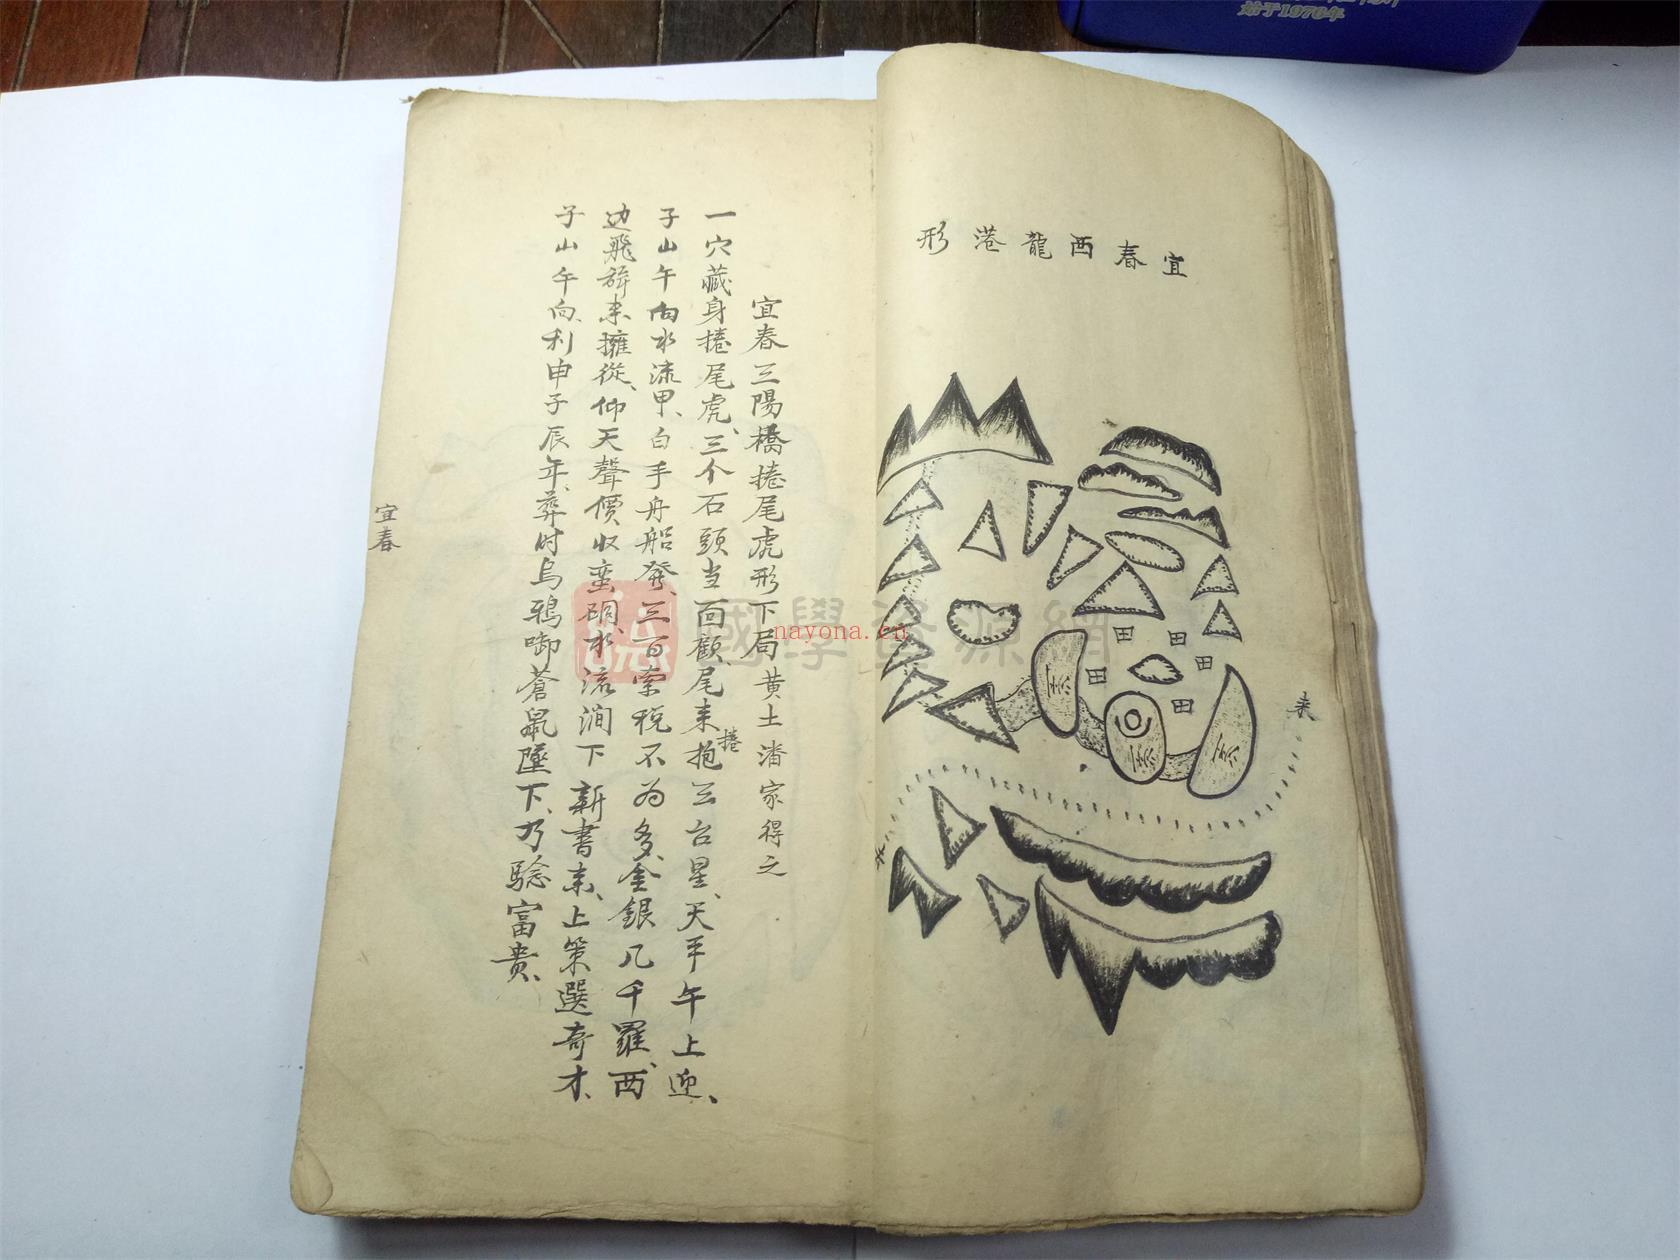 始于1976年
宜春西龍港形
玄
玄
玄
田
田
田
田
田
来
宜春三陽橋捲尾虎形下局黄土潘家得之
一穴藏身捲尾虎、三个石頭当面顧、尾来抱三台星、天平午上迎、
捲
子山午向水流甲、白手舟船發、三百索税不为多、金銀几千羅、西
边飛 来擁從、仰天聲價收蛮硐、水流澗下新書来、上策選奇才、
子山午向、利申子辰年、葬时烏鴉啣蒼鼠墜下、乃驗富貴、
宜春
國學資源網
nayona.cn